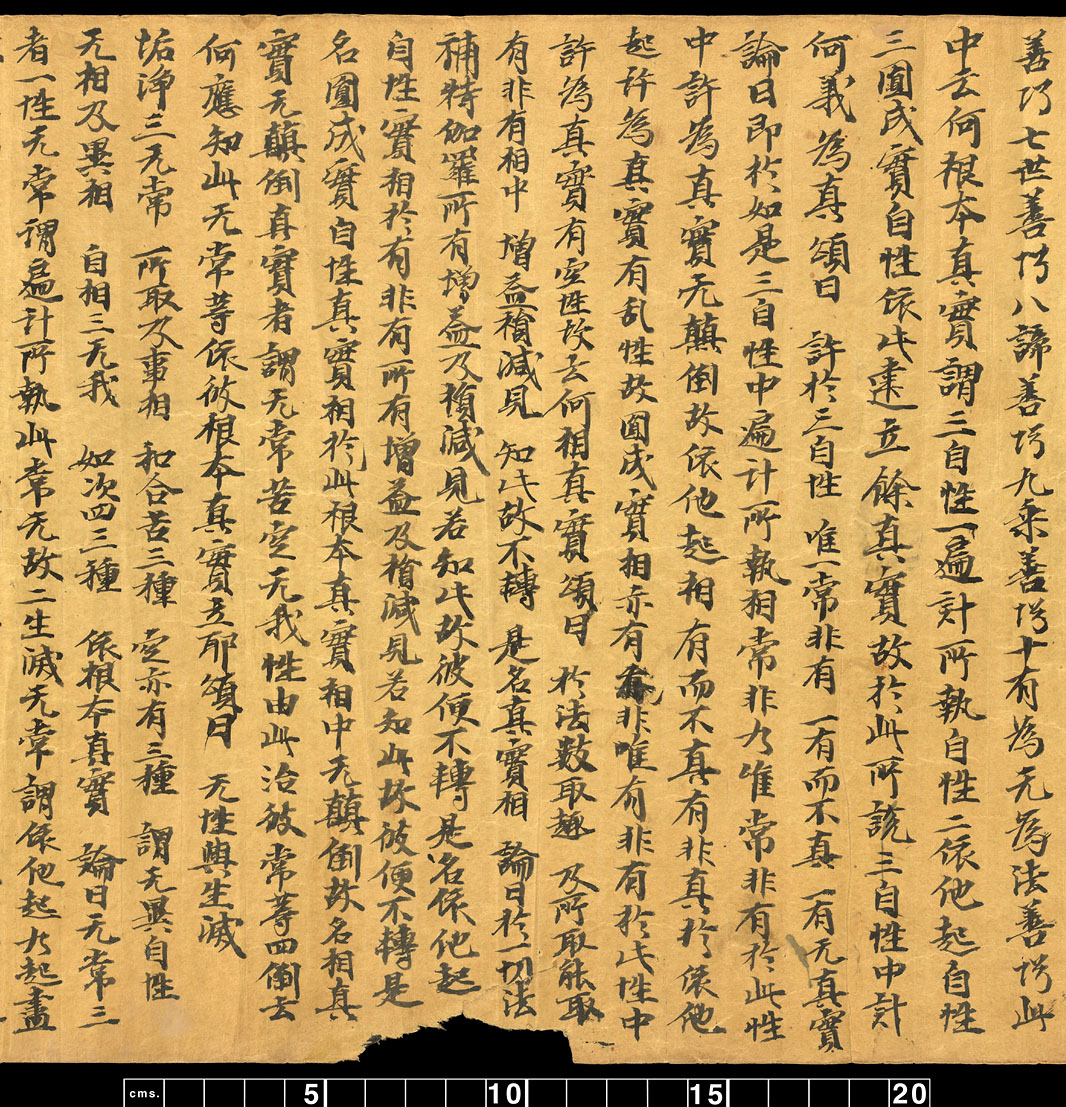 善巧七世善巧八諦善巧九乘善巧十有為无為法善巧此
中云何根本真實謂三自性一遍計所執自性二依他起自性
三圓成實自性依此建立餘真實故於此所說三自性中許
何義為真頌曰 許於三自性 唯一常非有 一有而不真 一有无真實
論曰即於如是三自性中遍計所執相常非有唯常非有於此性
中許為真實无顛倒故依他起相有而不真有非真於依他
起許為真實有乱性故圓成實相亦有非唯有非有於此性中
許為真實有空性故云何相真實頌曰 於法數取趣 及所取能取
有非有相中 增益損減見 知此故不轉 是名真實相 論曰於一切法
補特伽羅所有增益及損減見若知此故彼便不轉是名依他起
自性實相於有非有所有增益及損減見若知此故彼便不轉是
名圓成實自性真實相於此根本真實相中无顛倒故名相真
實无顛倒真實者謂无常苦空无我性由此治彼常等四倒云
何應知此无常等依彼根本真實立耶頌曰 无性與生滅
垢淨三无常 所取及事相 和合苦三種 空亦有三種 謂无異自性
无相及異相 自相三无我 如次四三種 依根本真實 論曰无常三
者一性无常謂遍計所執此常无故二生滅无常謂依他起有起盡
cms. 5 10 15 20